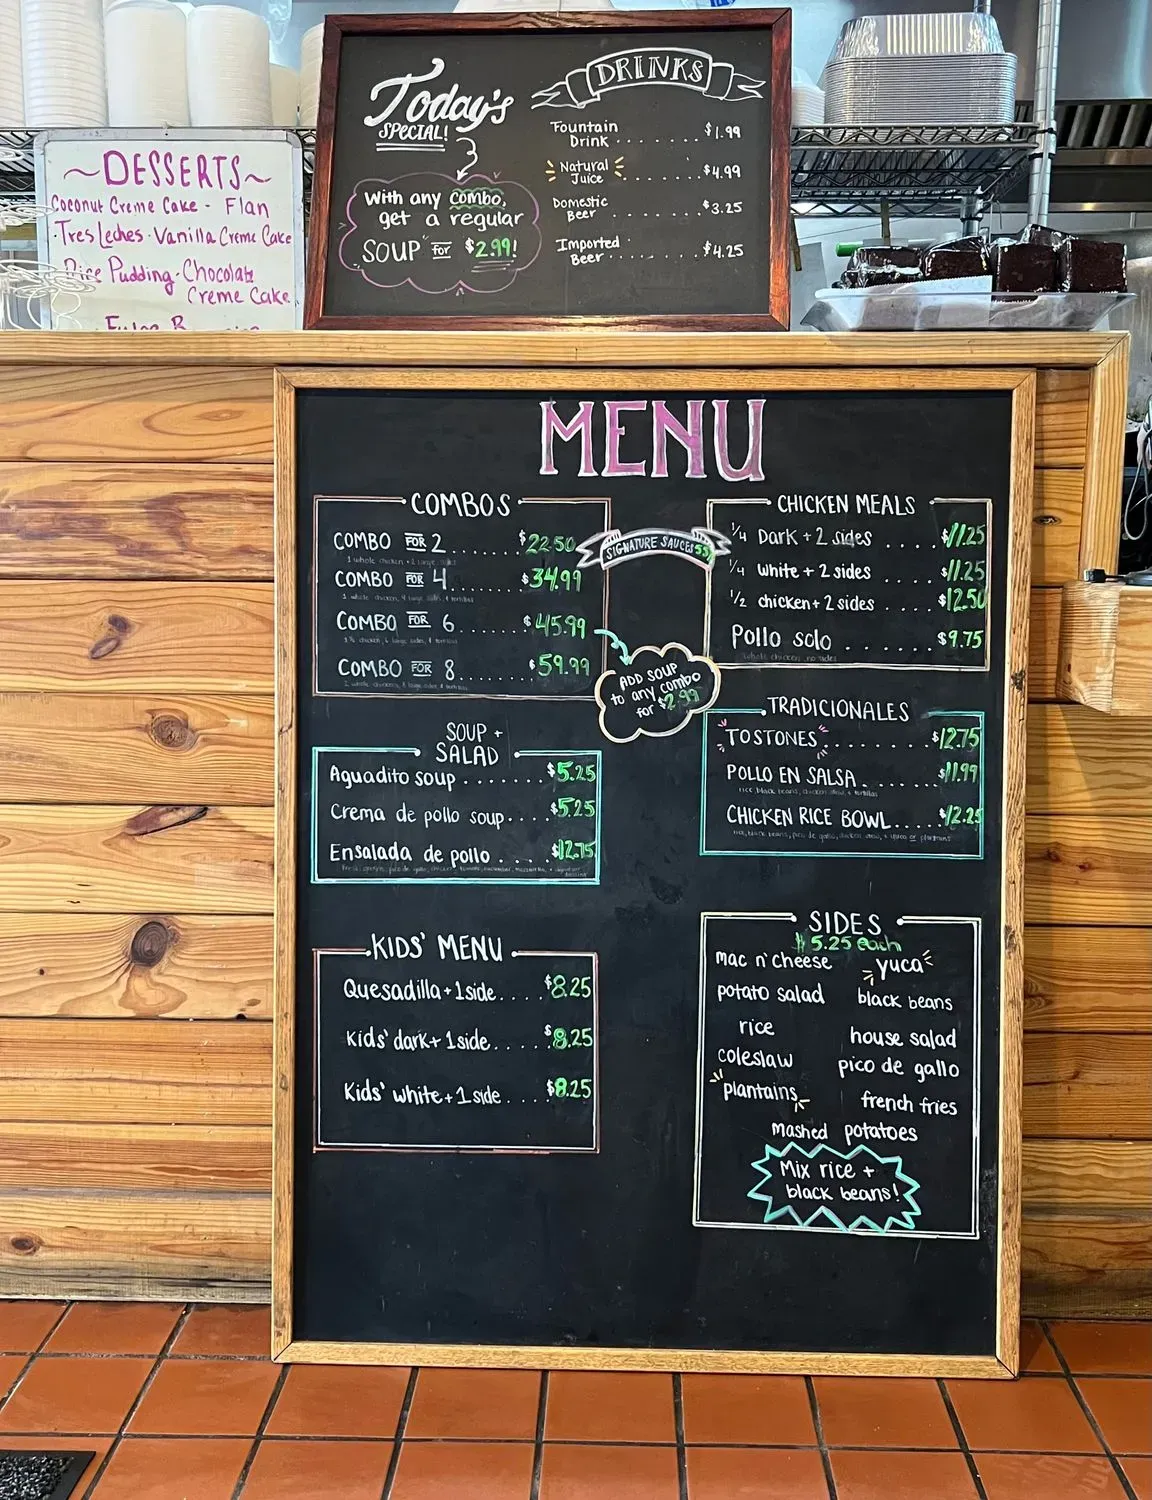 ~DESSERTS~
Coconut Creme Cake - Flan
·Tres Leches·Vanilla Creme Cake
Rice Pudding·Chocolate
Creme Cake
Today's
SPECIAL!
With any combo,
get a regular
SOUP FOR $2.99!
DRINKS
Fountain
Drink ....... $1.99
Natural
Juice ....... $4.99
Domestic
Beer ........ $3.25
Imported
Beer ........ $4.25
MENU
COMBOS
COMBO FOR 2 ....... $22.50
COMBO FOR 4 ....... $34.99
COMBO FOR 6 ....... $45.99
COMBO FOR 8 ....... $59.99
SIGNATURE SAUCES
ADD SOUP
to any combo
for $2.99
CHICKEN MEALS
1/4 Dark + 2 sides .... $11.25
1/4 white + 2 sides .... $11.25
1/2 chicken + 2 sides .... $12.50
Pollo solo ...... $9.75
whole chicken, no sides
SOUP +
SALAD
Aguadito soup ....... $5.25
Crema de pollo soup.... $5.25
Ensalada de pollo .... $12.75
TRADICIONALES
TOSTONES ........ $12.75
POLLO EN SALSA ....... $11.99
rice, black beans, chicken stew, + tortillas
CHICKEN RICE BOWL.... $12.25
KIDS' MENU
Quesadilla + 1 side.... $8.25
Kids' dark + 1 side..... $8.25
Kids' white + 1 side .... $8.25
SIDES
$5.25 each
mac n' cheese
yuca
potato salad
black beans
rice
house salad
coleslaw
pico de gallo
plantains
french fries
mashed potatoes
Mix rice +
black beans!